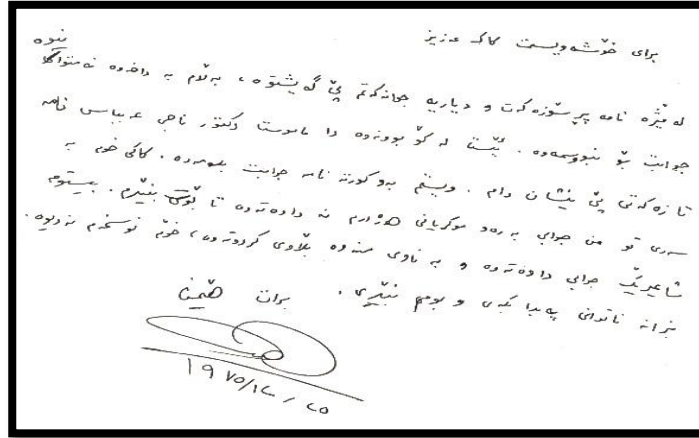 برای خۆشەویست کاک عزیز
لە مێژە نامە پڕ سۆزەکەت و دیاریە جوانەکەتم پێ گەیشتوە، بەڵام بە داخەوە نەمتوانی
جوابت بۆ بنووسمەوە. ئێستا لە کۆبوونەوە دا ماموستا دکتور ناجی عباسی نامە
تازەکەتی پێ نیشان دام. ویستم بەو کورتە نامە جوابت بدەمەوە. کاکی خۆم بە
سەری تو من جوابی بەرەو موکریانی هەژارم نە داوەتەوە تا بۆتی بنێرم. بیستومە
شاعیرێک جوابی داوەتەوە و بە ناوی منەوە بڵاوی کردوتەوە، خۆم نوسخەم نەدیوە.
نازانی پەیدا بکەی و بومی بنێری.
برات هێمن
١٩٧٥/١٢/٢٥